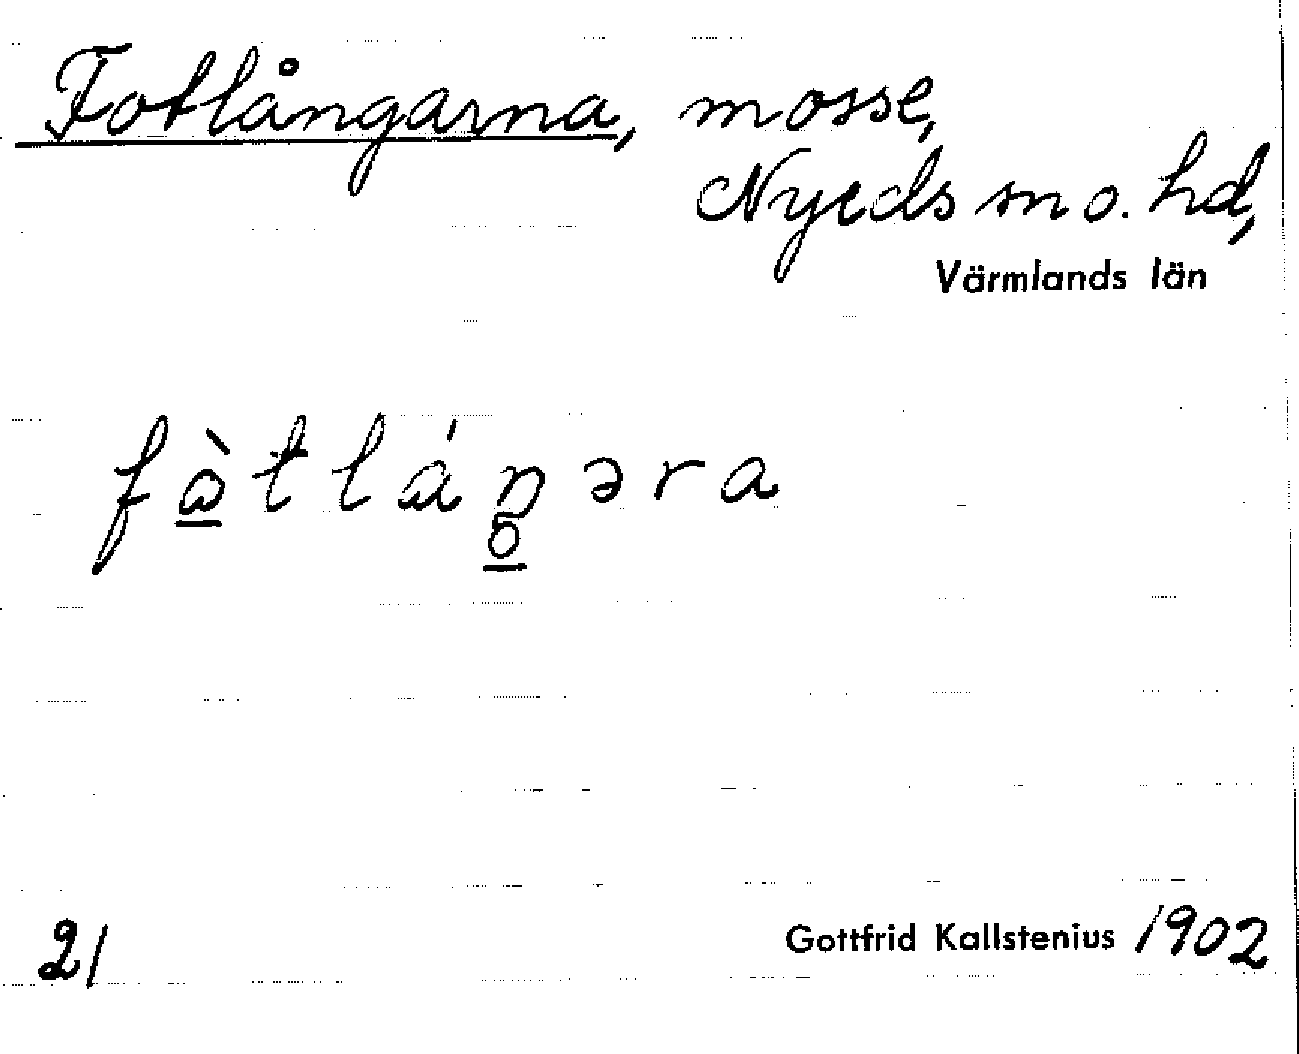 Fotlångarna, mosse,
Nyeds sn o. hd,
Värmlands län
fὰtlάŋəra
o
21
Gottfrid Kallstenius 1902